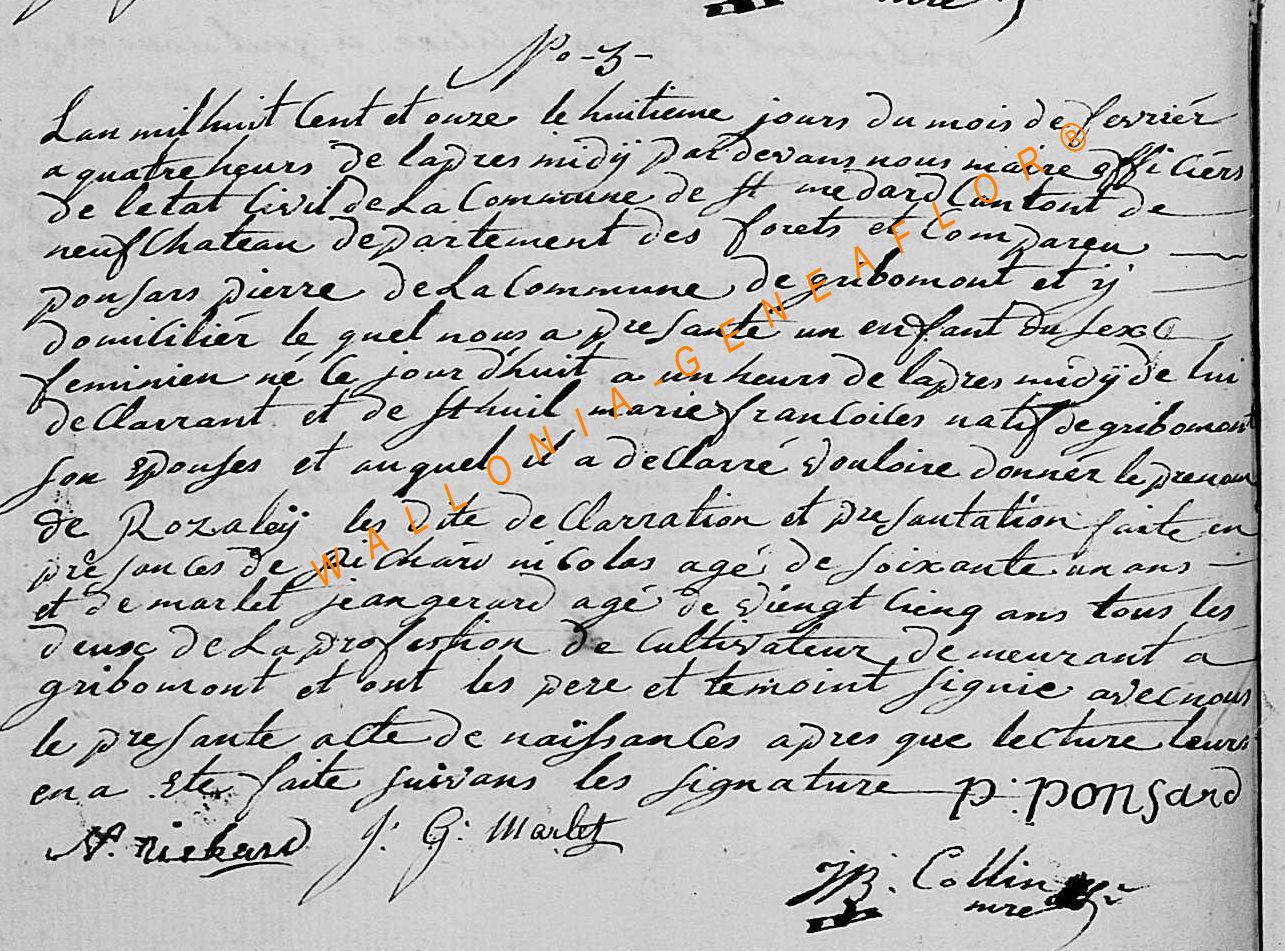 No - 3 -
Lan mil huit Cent et onze le huitieme jours du mois de fevriér
a quatre heurs de lapres midÿ par devans nous maire officiérs
de letat Civil de La Commune de St medard Cantont de
neufChateau departement des forets et Compareu
ponsars pierre de La Commune de gribomont et ÿ
domiciliér le quel nous a presanté un enfant du sexe
feminien né Ce jour d'huit a un heurs de lapres midÿ de lui
deClarrant et de Sthuil marie francoices natif de gribomont
son Epouses et auquel il a deClarré vouloire donnér le prenom
de Rozaleÿ les dite deClarration et presantation faite en
presances de Richard nicolas agé de soixante un ans -
et de marlet jean gerard agé de viengt Cienq ans tous les
deux de La profession de Cultivateur demeurant a
gribomont et ont les pere et temoint signie avec nous
le presante acte de naissances apres que lecture leurs
en a Ete faite suivans les signature P: PONSARD
N: richard J: G: Marlet
JB. Collin
mre
WALLONIA-GENEAFLOR®